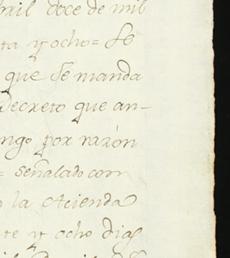 bril doce de mil
ta y ocho= Se
que Se manda
Decreto que an-
ngo por razòn
= señalado con
la Acienda
te y ocho dias